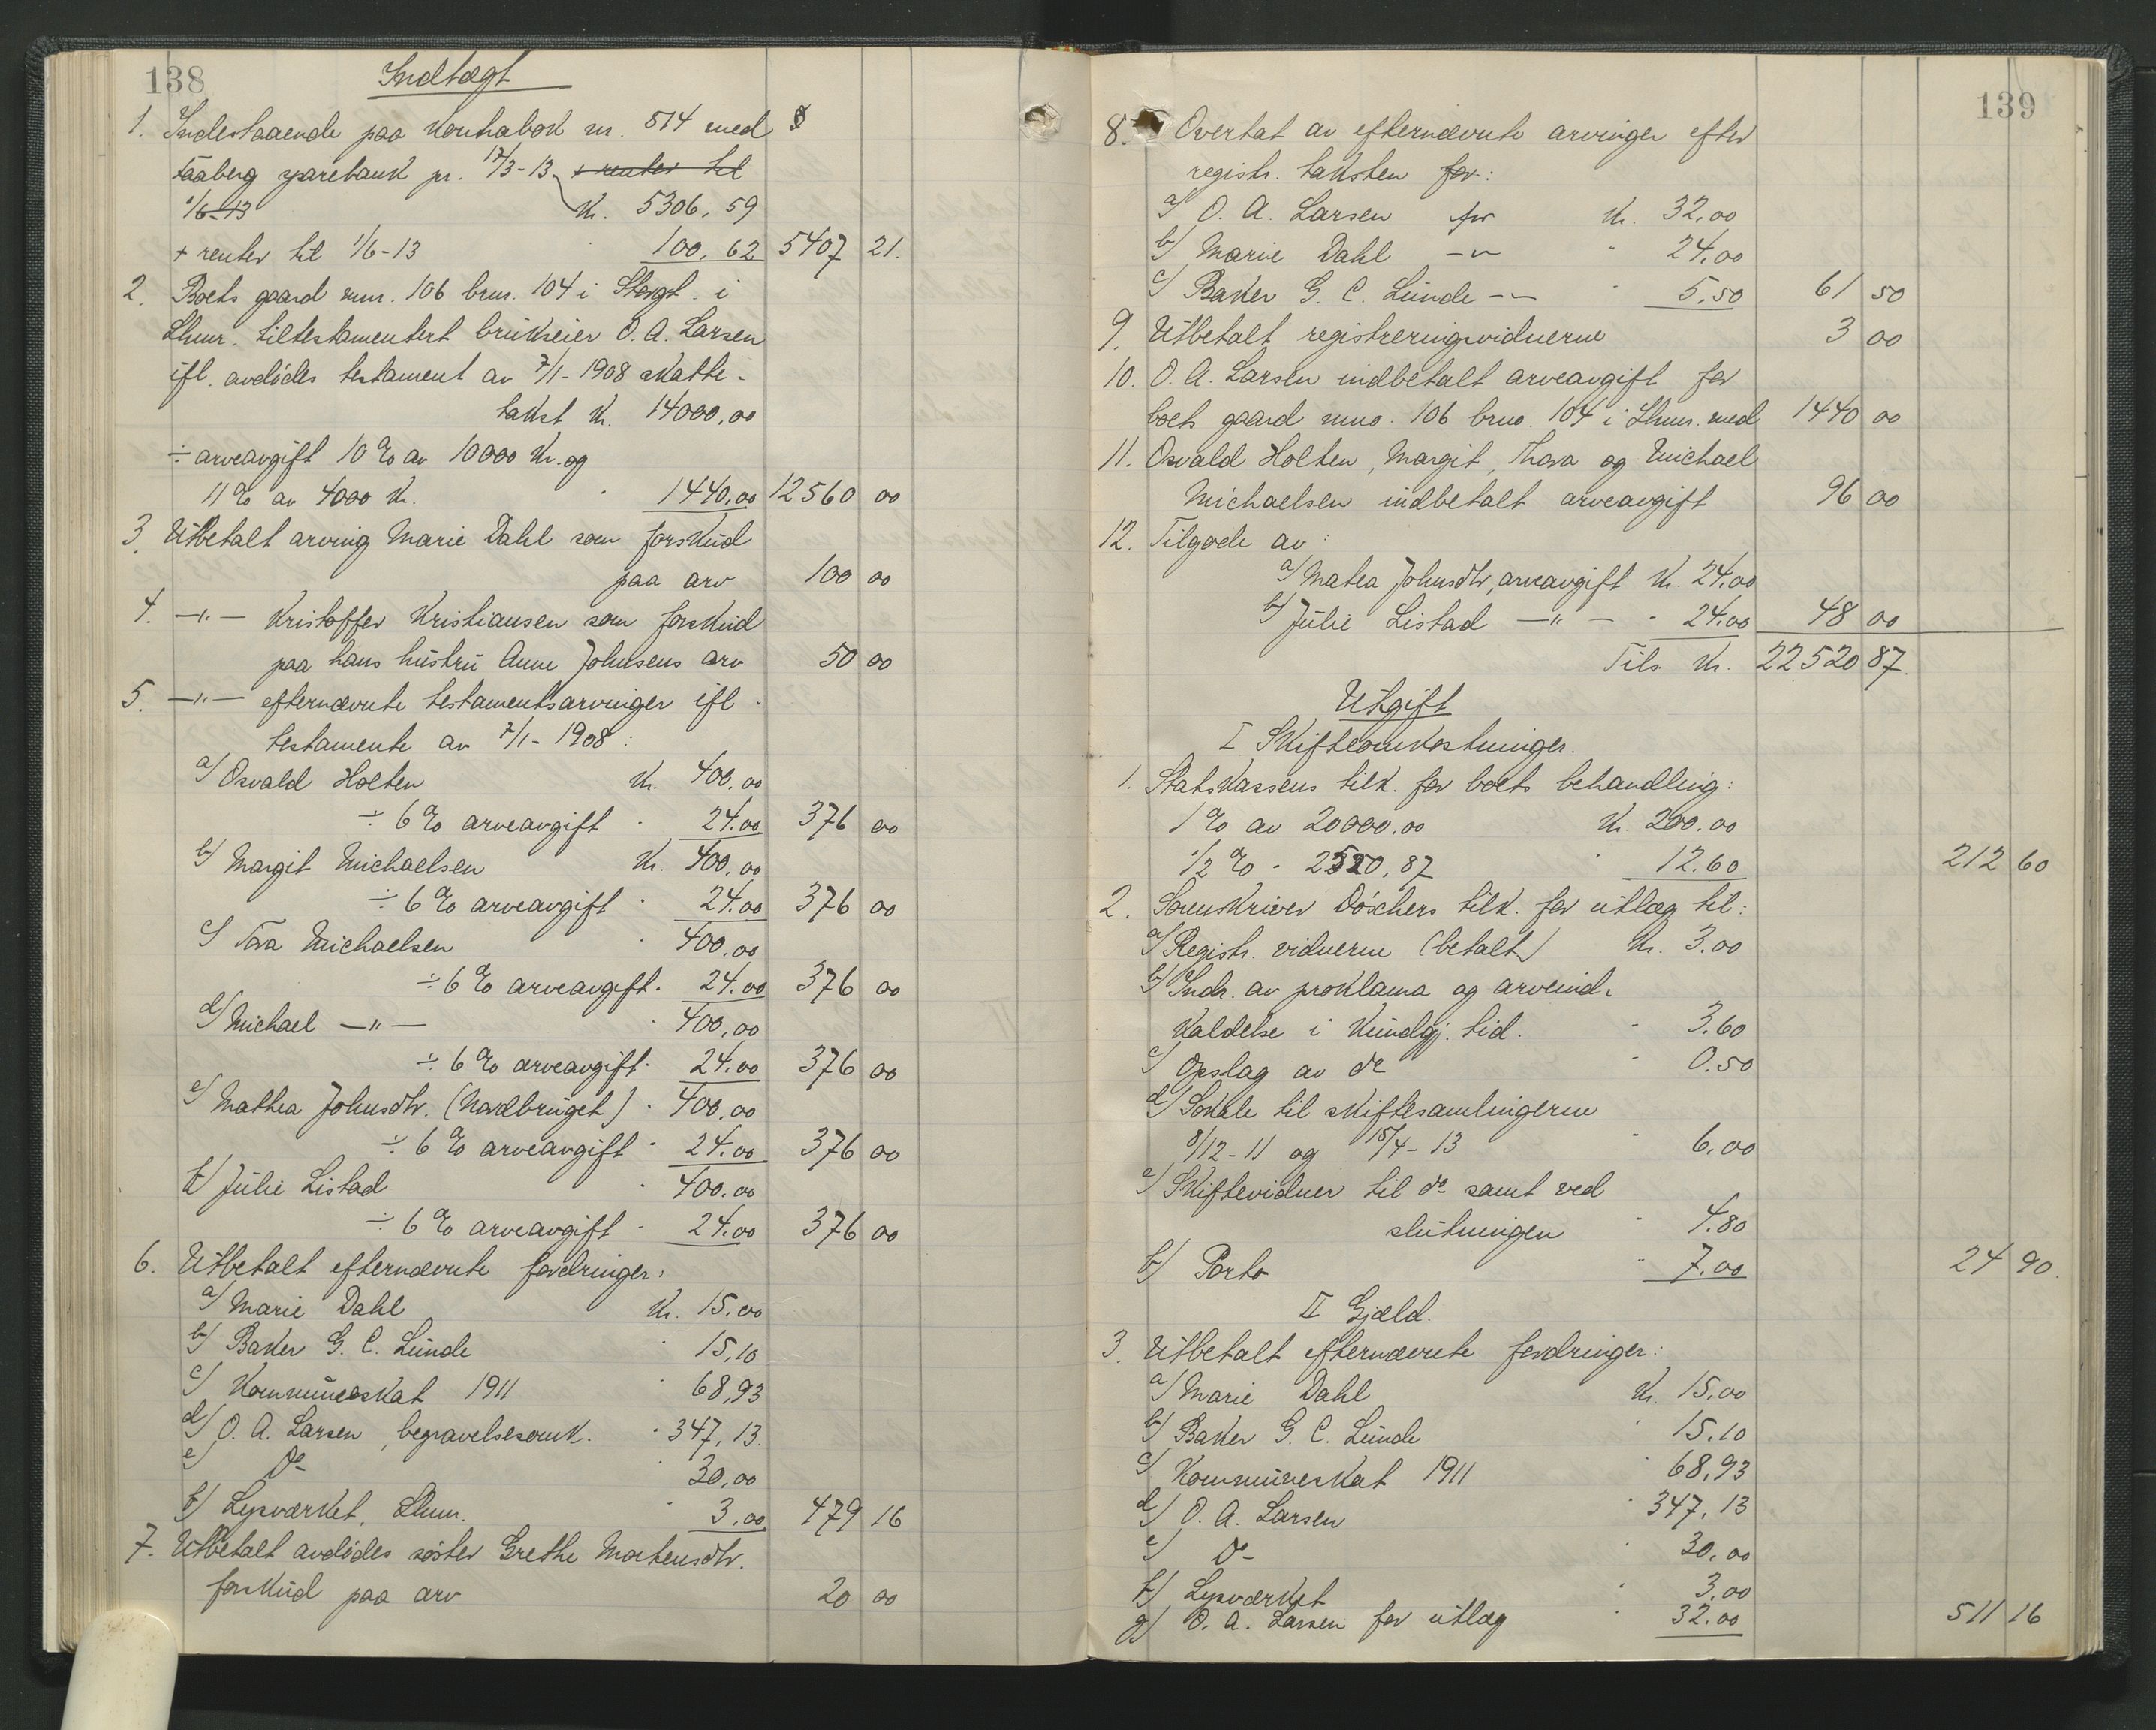 138
Indtægt
1. Indestaaende paa Kontrabok nr. 514 med
Faaberg sparebank pr. 17/3-13 + renter til
1/6-13 Kr. 5306,59
+ renter til 1/6-13 " 100,62 5407 21.
2. Boets gaard mnr. 106 brnr. 104 i Storgt. i
Lhmr. tiltestamentert brukseier O. A. Larsen
ifl. avdödes testament av 7/1-1908 skatte-
takst Kr. 14000,00
÷ arveavgift 10% av 10000 Kr. og
11% av 4000 Kr. " 1440,00 12560 00
3. Utbetalt arving Marie Dahl som forskud
paa arv 100 00
4. —"— Kristoffer Kristiansen som forskud
paa hans hustru Anne Johnsens arv 50 00
5. —"— efternævnte testamentsarvinger ifl.
testamente av 7/1-1908:
a/ Osvald Holten Kr. 400,00
÷ 6% arveavgift " 24.00 376 00
b/ Margit Michaelsen Kr. 400,00
÷ 6% arveavgift " 24.00 376 00
c/ Tora Michaelsen " 400,00
÷ 6% arveavgift " 24.00 376 00
d/ Michael —"— " 400,00
÷ 6% arveavgift " 24.00 376 00
e/ Mathea Johnsdtr. (Nordbruget) " 400,00
÷ 6% arveavgift " 24.00 376 00
f/ Julie Listad " 400.00
÷ 6% arveavgift " 24.00 376 00
6. Utbetalt efternævnte fordringer:
a/ Marie Dahl Kr. 15,00
b/ Baker G. C. Lunde " 15,10
c/ Kommuneskat 1911 " 68,93
d/ O. A. Larsen, begravelsesomk. " 347,13.
e/ Do " 30,00
f/ Lysværket, Lhmr. " 3,00 479 16
7. Utbetalt avdödes söster Grethe Mortensdtr.
forskud paa arv 20 00
139
8. Overtat av efternævnte arvinger efter
registr. taksten for:
a/ O. A. Larsen for Kr. 32,00
b/ Marie Dahl —"— " 24,00
c/ Baker G. C. Lunde —"— " 5,50 61 50
9. Utbetalt registreringsvidnerne 3 00
10. O. A. Larsen indbetalt arveavgift for
boets gaard mno. 106 brno. 104 i Lhmr. med 1440 00
11. Osvald Holten, Margit, Thora og Michael
Michaelsen indbetalt arveavgift 96 00
12. Tilgode av:
a/ Matea Johnsdtr, arveavgift Kr. 24,00
b/ Julie Listad —"— " 24.00 48 00
Tils Kr. 22520 87.
Utgift
I Skifteomkostninger.
1. Statskassens tilk. for boets behandling:
1% av 20000.00 Kr. 200.00
1/2% " 2520,87 " 12.60 212 60
2. Sorenskriver Döschers tilk. for utlæg til:
a/ Registr. vidnerne (betalt) Kr. 3.00
b/ Indr. av proklama og arveind-
kaldelse i Kundgj. tid. " 3.60
c/ Opslag av do " 0.50
d/ Lokale til skiftesamlingerne
8/12-11 og 15/4-13 " 6,00
e/ Skiftevidner til do samt ved
slutningen " 4.80
f/ Porto " 7.00 24 90.
II Gjæld.
3. Utbetalt efternævnte fordringer:
a/ Marie Dahl Kr. 15,00
b/ Baker G. C. Lunde " 15.10
c/ Kommuneskat 1911 " 68,93
d/ O. A. Larsen " 347,13
e/ Do " 30,00
f/ Lysværket " 3,00
g/ O. A. Larsen for utlæg " 32.00 511 16